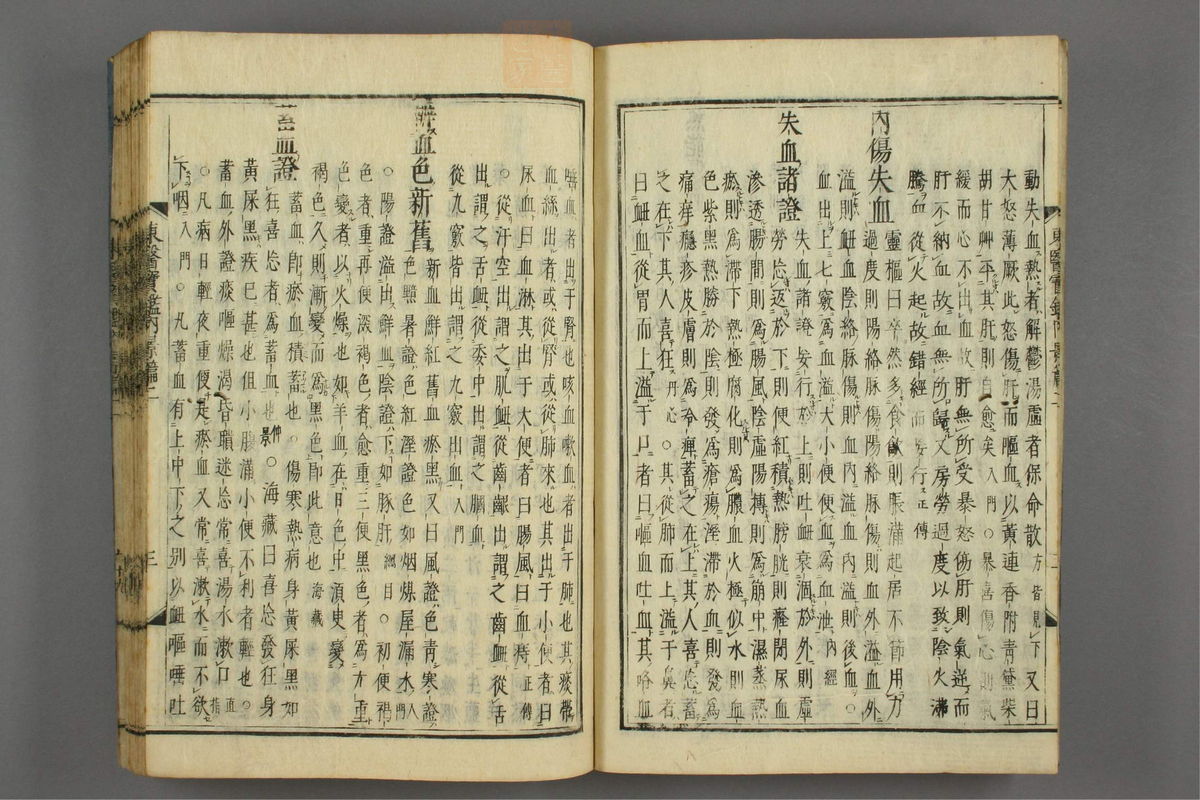 動失血熱者解鬱湯虛者保命散方皆見下又曰
大怒薄厥此怒傷肝而嘔血以黃連香附青黛柴
胡甘艸平其肝則自愈矣入門○暴喜傷心則氣
緩而心不出血故肝無所受暴怒傷肝則氣逆而
肝不納血故血無所歸又房勞過度以致陰火沸
騰血從火起故錯經而妄行正傳
內傷失血
靈樞曰卒然多食飮則脹滿起居不節用力
過度則陽絡脉傷陽絡脉傷則血外溢血外
溢則衄血陰絡脉傷則血內溢血內溢則後血○
血出上七竅爲血溢大小便便血爲血泄內經
失血諸證
失血諸證妄行於上則吐衄衰涸於外則虛
勞妄返於下則便紅積熱膀胱則癃閉尿血
滲透腸間則爲腸風陰虛陽搏則爲崩中濕蒸熱
瘀則爲滯下熱極腐化則爲膿血火極似水則血
色紫黑熱勝於陰則發爲瘡瘍溼滯於血則發爲
痛痒癮疹皮膚則爲冷痺蓄之在上其人喜忘蓄
之在下其人喜狂丹心○其從肺而上溢于鼻者
曰衄血從胃而上溢于口者曰嘔血吐血其咯血
唾血者出于腎也咳血嗽血者出于肺也其痰帶
血絲出者或從腎或從肺來也其出于小便者曰
尿血曰血淋其出于大便者曰腸風曰血痔正傳
○從汗空出謂之肌衄從齒齦出謂之齒衄從舌
出謂之舌衄從委中出謂之膕血
從九竅皆出謂之九竅出血入門
辨血色新舊
新血鮮紅舊血瘀黑又曰風證色靑寒證
色黯暑證色紅溼證色如烟煤屋漏水入門
○陽證溢出鮮血陰證下如豚肝綱目○初便褐
色者重再便深褐色者愈重三便黑色者爲尤重
色變者以火燥也如羊血在日色中須臾變
褐色久則漸變而爲黑色卽此意也海藏
蓄血證
蓄血卽瘀血積蓄也○傷寒熱病身黃屎黑如
狂喜忘者爲蓄血也仲景○海藏曰喜忘發狂身
黃屎黑疾已甚也但小腹滿小便不利者輕也○
蓄血外證痰嘔燥渴昏聵迷忘常喜湯水漱口直指
○凡病日輕夜重便是瘀血又常喜漱水而不欲
下咽入門○凡蓄血有上中下之別以衄嘔唾吐